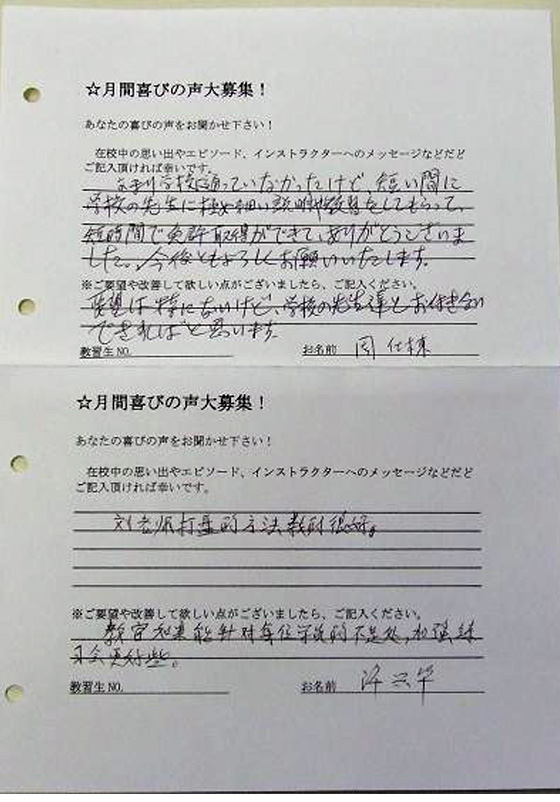 ☆月間喜びの声大募集！
あなたの喜びの声をお聞かせ下さい！
在校中の思い出やエピソード、インストラクターへのメッセージなどだど
ご記入頂ければ幸いです。
あまり学校に通っていなかったけど、短い間に
学校の先生に細い説明や教習をしてもらって、
短時間で免許取得ができて、ありがとうございま
した。今後ともよろしくお願いいたします。
※ご要望や改善して欲しい点がございましたら、ご記入ください。
要望は特にないけど、学校の先生達とお付き合い
できればと思います
教習生NO.
お名前 周仕棟
☆月間喜びの声大募集！
あなたの喜びの声をお聞かせ下さい！
在校中の思い出やエピソード、インストラクターへのメッセージなどだど
ご記入頂ければ幸いです。
刘老师打盘的方法教的很好。
※ご要望や改善して欲しい点がございましたら、ご記入ください。
教官如果能针对每位学员的不足处，加强练
习会更好些。
教習生NO.
お名前 许